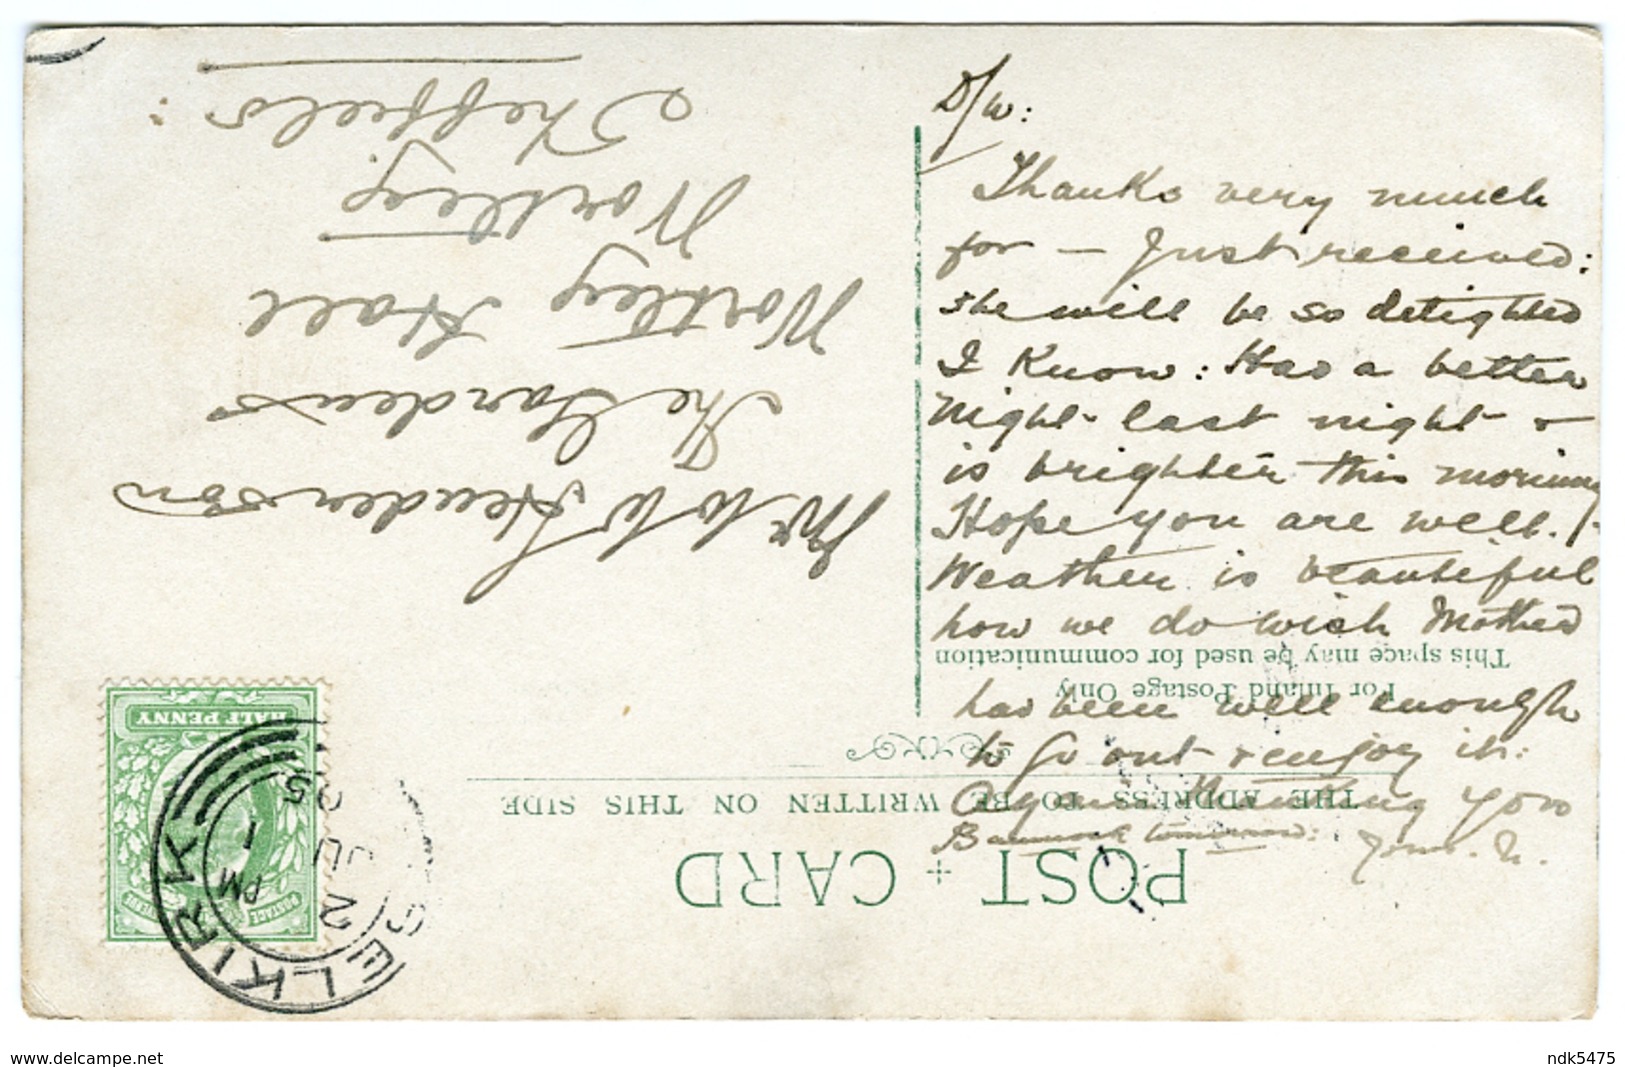 D/W:
Thanks very much
for — Just received:
she will be so delighted
I Know: Has a better
night last night &
is brighter this morning
Hope you are well.
Weather is beautiful
how we do wish Mother
has been well enough
to go out & enjoy it:
Again thanking you
Bannock tomorrow:
POST CARD
THE ADDRESS TO BE WRITTEN ON THIS SIDE
For Inland Postage Only
This space may be used for communication
Mr W W Henderson
The Gardens
Wortley Hall
Wortley
Sheffield
HALF PENNY
POSTAGE
REVENUE
SELKIRK
1 PM
2 JU
05
www.delcampe.net
ndk5475